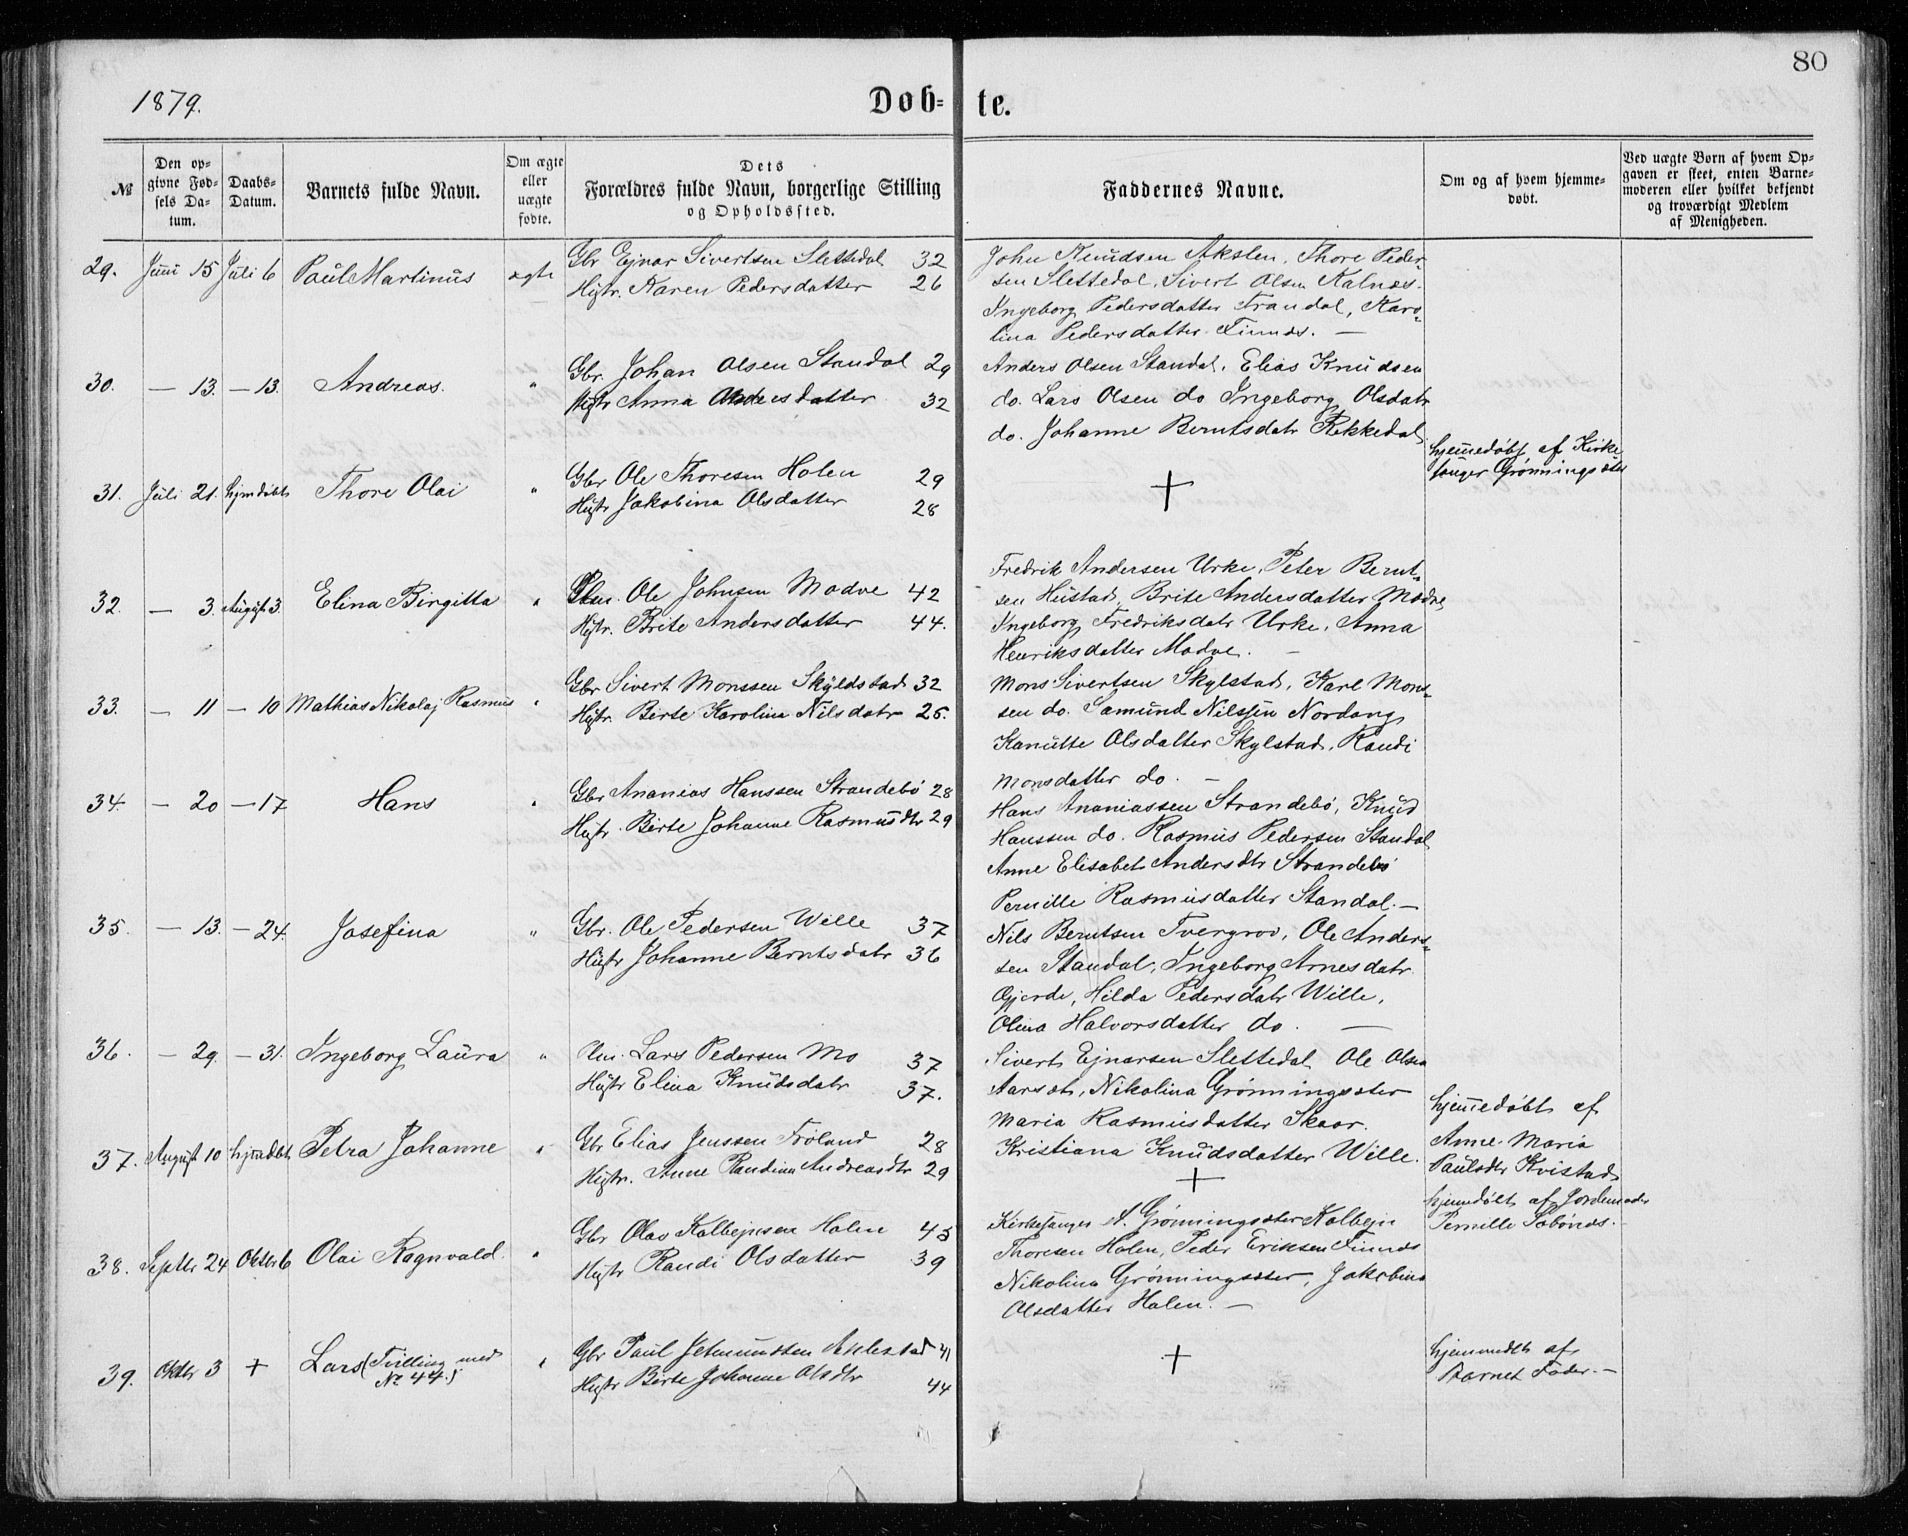 80
1879.
Døb-
te.
№
Den op-
givne Fød-
sels Da-
tum.
Daabs-
Datum.
Barnets fulde Navn.
Om ægte
eller
uægte
fødte.
Dets
Forældres fulde Navn, borgerlige Stilling
og Opholdssted.
Faddernes Navne.
Om og af hvem hjemme-
døbt.
Ved uægte Børn af hvem Op-
gaven er skeet, enten Barne-
moderen eller hvilket bekjendt
og troværdigt Medlem
af Menigheden.
29. Juni 15 Juli 6 Paul Martinus ægte
Gbr Ejnar Sivertsen Slettedal 32
Hustr. Karen Pedersdatter 26
John Knudsen Akslen, Thore Peder-
sen Slettedal, Sivert Olsen Kalnæs.
Ingeborg Pedersdatter Trandal, Karo-
lina Pedersdatter Finnæs. —
30. — 13. — 13. Andreas. "
Gbr. Johan Olsen Standal 29
Hustr Anna Andersdatter 32
Anders Olsen Standal, Elias Knudsen
do. Lars Olsen do Ingeborg Olsdatr
do. Johanne Berntsdatr Rekkedal
31. Juli 21. hjmdøbt Thore Olai "
Gbr Ole Thoresen Holen 29
Hustr Jakobina Olsdatter 28
+
hjemmedøbt af Kirke
sanger Grønningsæter
32. — 3. August 3. Elina Birgitta "
Plm. Ole Johnsen Modve 42
Hustr. Brite Andersdatter 44.
Fredrik Andersen Urke, Peter Bernt-
sen Hustad, Brite Andersdatter Modve
Ingeborg Fredriksdatr Urke, Anna
Henriksdatter Modve. —
33. — 11 — 10 Mathias Nikolaj Rasmus "
Gbr Sivert Monssen Skyldstad 32
Hustr. Birte Karolina Nilsdatr 25.
Mons Sivertsen Skylstad, Karl Mons-
sen do. Samund Nilssen Nordang
Kanutte Olsdatter Skylstad, Randi
Monsdatter do. —
34. — 20 — 17 Hans "
Gbr Ananias Hanssen Strandebø 28
Hustr. Birte Johanne Rasmusdtr 29
Hans Ananiassen Strandebø, Knud
Hanssen do. Rasmus Pedersen Standal
Anne Elisabet Andersdtr Strandebø
Pernille Rasmusdatter Standal. —
35. — 13. — 24. Josefina "
Gbr. Ole Pedersen Wille 37
Hustr Johanne Berntsdatr 36
Nils Berntsen Tvergrov, Ole Anders-
sen Standal, Ingeborg Arnesdatr
Gjerde, Hilda Pedersdatr Wille,
Olina Halvorsdatter do. —
36. — 29. — 31. Ingeborg Laura "
Plm. Lars Pedersen Mo 37
Hustr Elina Knudsdatr 37.
Sivert Ejnarsen Slettedal Ole Olsen
Aarsæt, Nikolina Grønningsæter
Maria Rasmusdatter Skaar.
Kristiana Knudsdatter Wille.
37. August 10 hjmdøbt Petra Johanne "
Gbr Elias Jenssen Frøland 28
Hustr. Anne Randina Andreasdtr 29
+
hjemmedøbt af
Anne Maria
Paulsdtr Kvistad
38. Septbr 24 Oktbr 6 Olai Ragnvald. "
Gbr Olav Kolbejnsen Holen 43
Hustr Randi Olsdatter 39
Kirkesanger A. Grønningsæter Kolbejn
Thoresen Holen, Peder Eriksen Finnæs
Nikolina Grønningsæter, Jakobina
Olsdatter Holen. —
hjemmedøbt af Jordemoder
Pernille Søbønæs. —
39. Oktbr 3 + Lars (Tvilling med
№ 44.) "
Gbr Paul Jetmundsen Aklestad 41
Hustr Birte Johanne Olsdtr 44
+
hjemmedt af
Barnet Fader. —